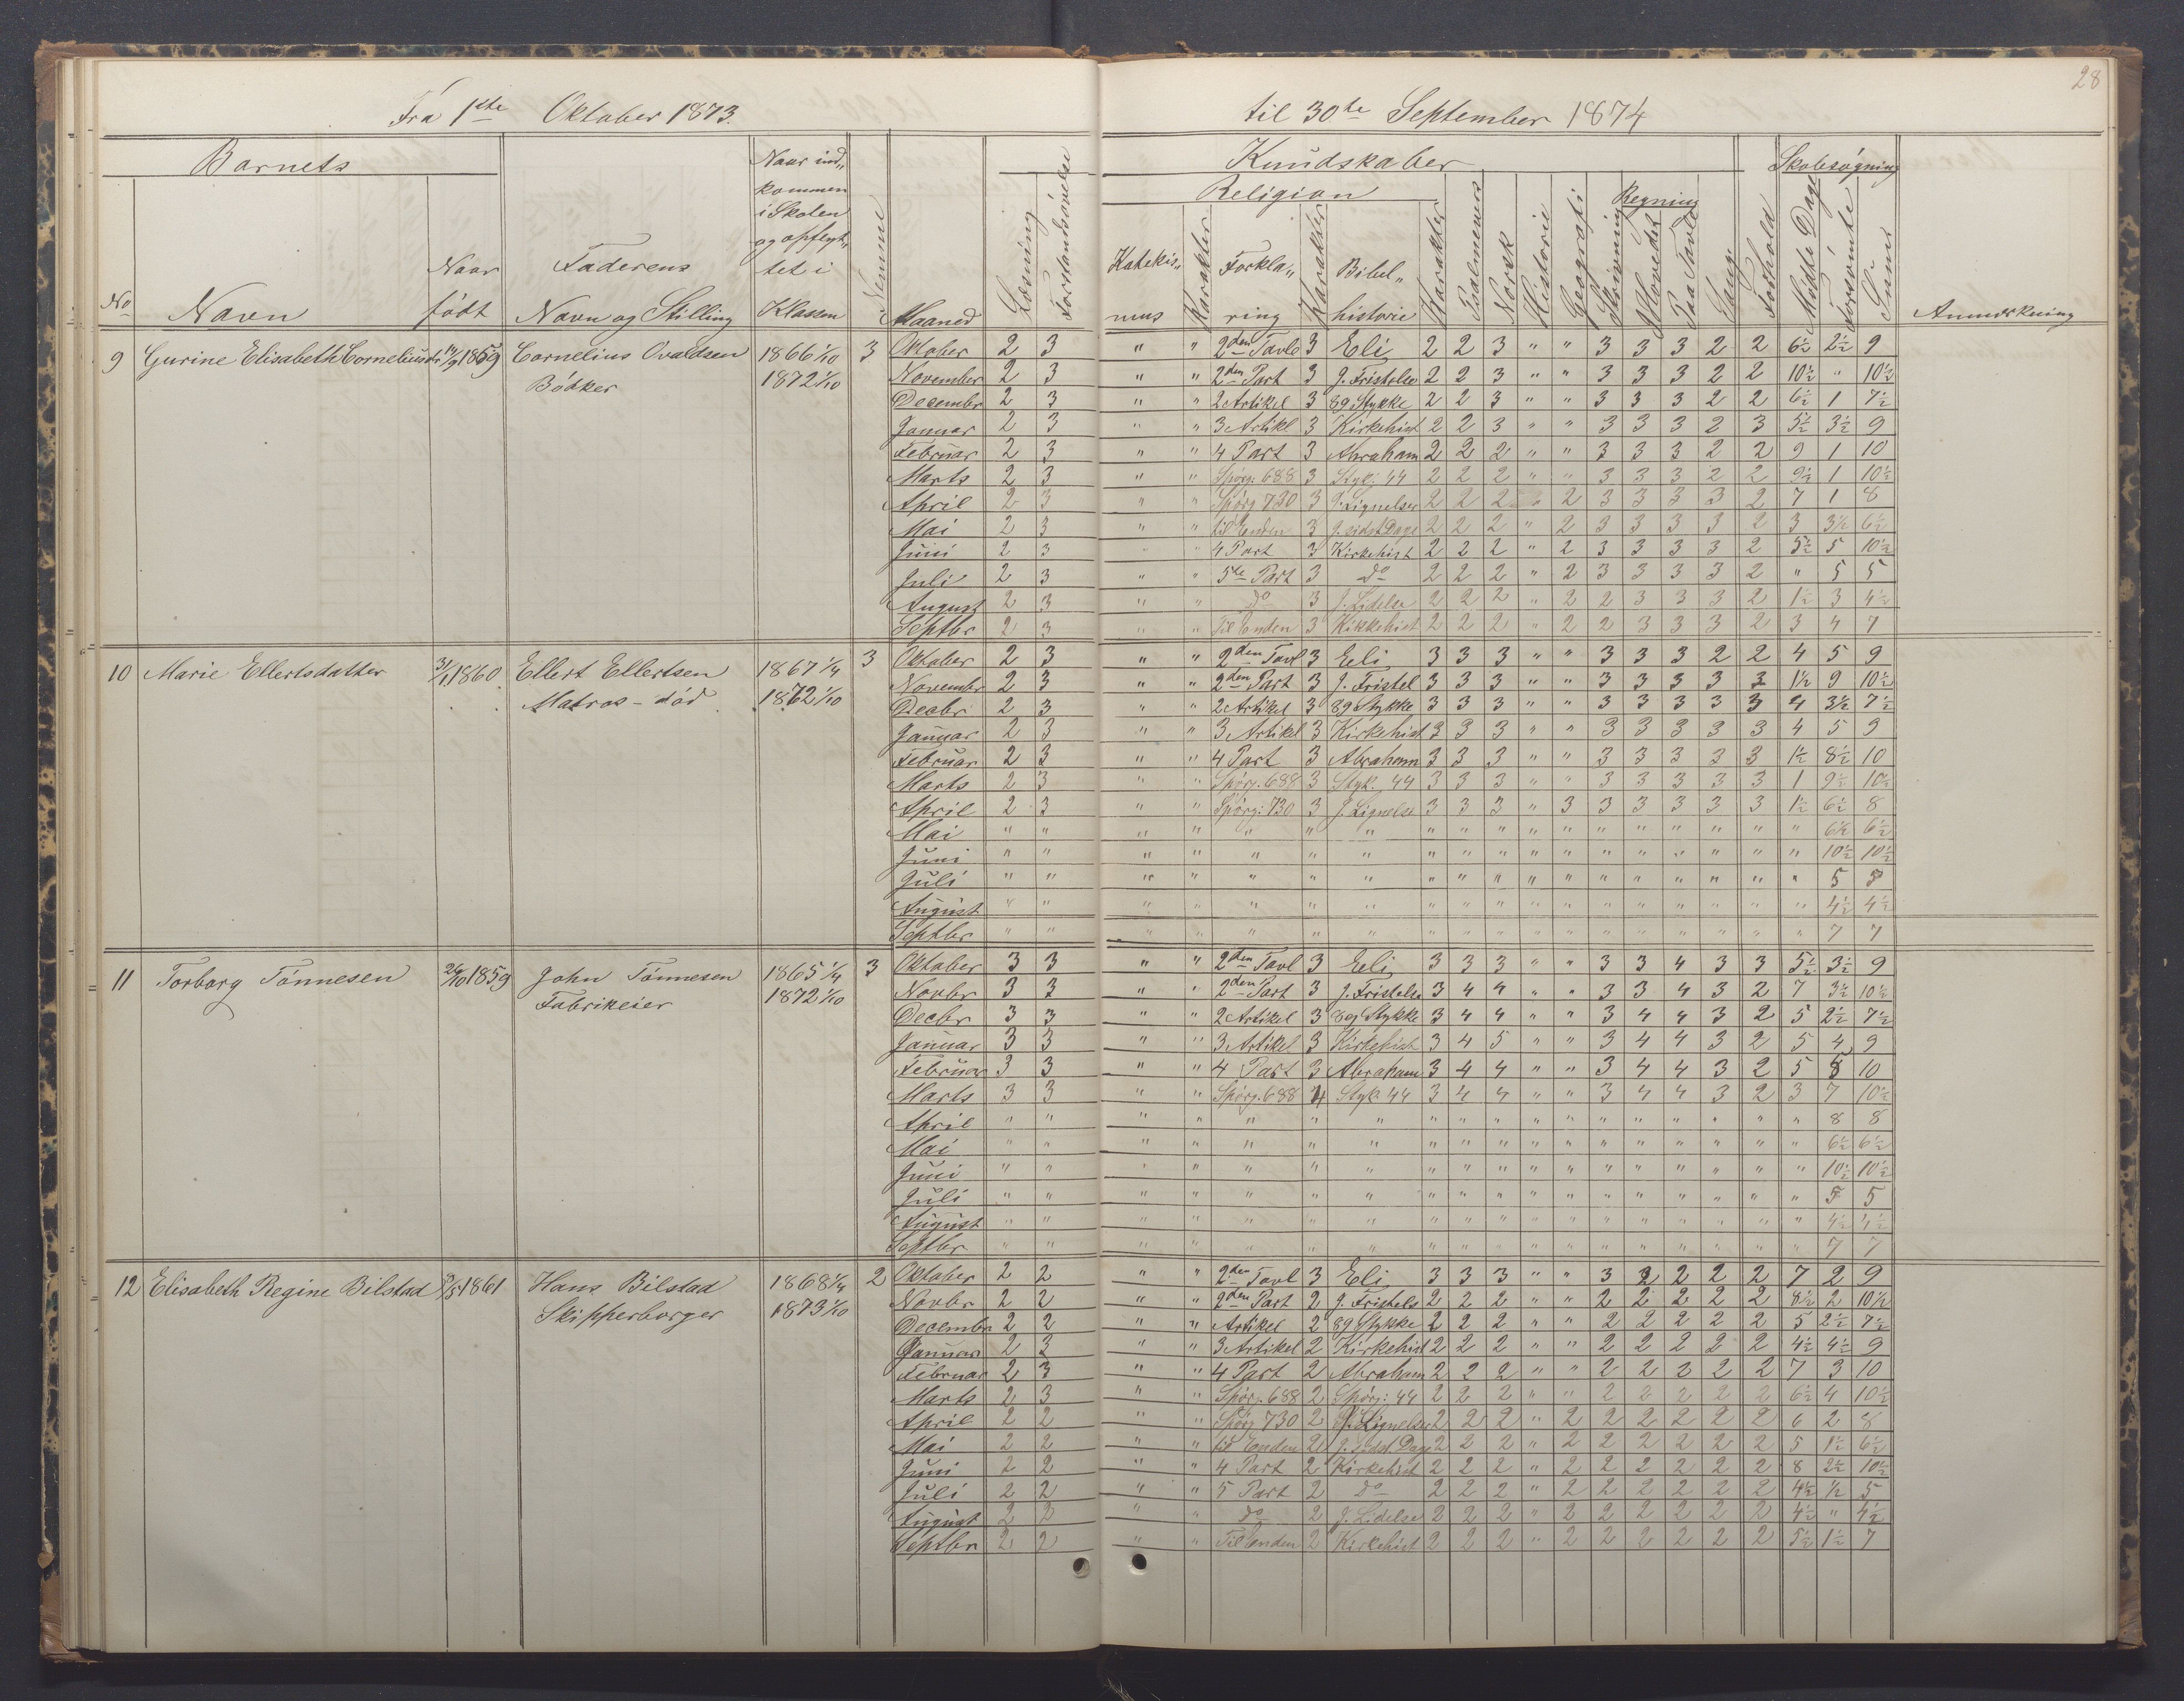 28
Fra 1ste Oktober 1873. til 30te September 1874
Barnets Kundskaber Skolesøgning
Religion Regning
No Navn Naar født Faderens Navn og Stilling Naar ind„ kommen i Skolen og opflyt„ tet i Klassen Nemme Maaned Læsning Forstandsøvelse Katekis„ mus Karakter Forkla„ ring Karakter Bibel„ historie Karakter Psalmevers Norsk Historie Geografi Skrivning I Hovedet Paa Tavle Sang Forhold Mødte Dage Forsømte Sum Anmerkning
9 Gurine Elisabeth Corneliusdt 1859 Cornelius Ovaldsen 1866 1/10 3 Oktober 2 3 " " 2den Tavle 3 Eli 2 2 3 " " 3 3 3 2 2 6½ 2½ 9
Bødker 1872 1/10 November 2 3 " " 2den Part 3 J. Fristelse 2 2 3 " " 3 3 3 2 2 10½ " 10½
Decembr 2 3 " " 2 Artikel 3 89 Stykke 2 2 3 " " 3 3 3 2 2 6½ 1 7½
Januar 2 3 " " 3 Artikl 3 Kirkehist 2 2 3 " " 3 3 3 2 3 5½ 3½ 9
Februar 2 3 " " 4 Part 3 Abraham 2 2 2 " " 3 3 3 2 2 9 1 10
Marts 2 3 " " Spørg. 688 3 Styk: 44 2 2 2 " " 3 3 3 2 2 9½ 1 10½
April 2 3 " " Spørg 730 3 J. Lignelser 2 2 2 2 3 3 3 3 2 7 1 8
Mai 2 3 " " til Enden 3 J. sidst Dage 2 2 2 " 2 3 3 3 3 2 3 3½ 6½
Juni 2 3 " " 4 Part 3 Kirkehist 2 2 2 " 2 3 3 3 3 2 5½ 5 10½
Juli 2 3 " " 5te Part 3 do 2 2 2 " 2 3 3 3 3 2 " 5 5
August 2 3 " " do 3 J. Lidelse 2 2 2 " 2 2 3 3 3 2 1½ 3 4½
Septbr 2 3 " " Til Enden 3 Kikkehist 2 2 2 " 2 2 3 3 3 2 3 4 7
10 Marie Ellertsdatter 31/1 1860 Ellert Ellertsen 1867 1/4 3 Oktober 2 3 " " 2den Tavl 3 Eeli 3 3 3 " " 3 3 3 2 2 4 5 9
Matros - død 1872 1/10 Novembr 2 3 " " 2den Part 3 J. Fristel 3 3 3 " " 3 3 3 3 3 1½ 9 10½
Decbr 2 3 " " 2 Artikel 3 89 Stykke 3 3 3 " " 3 3 3 3 3 4 3½ 7½
Januar 2 3 " " 3 Artikel 3 Kirkehist 3 3 3 " " 3 3 3 3 3 4 5 9
Februar 2 3 " " 4 Part 3 Abraham 3 3 3 " " 3 3 3 3 3 1½ 8½ 10
Marts 2 3 " " Spørg. 688 3 Styk. 44 3 3 3 " " 3 3 3 3 3 1 9½ 10½
April 2 3 " " Spørg: 730 3 J. Lignelse 3 3 3 " 3 3 3 3 3 3 1½ 6½ 8
Mai " " " " " " " " " " " " " " " " " " 6½ 6½
Juni " " " " " " " " " " " " " " " " " " 10½ 10½
Juli " " " " " " " " " " " " " " " " " " 5 5
August " " " " " " " " " " " " " " " " " " 4½ 4½
Septbr " " " " " " " " " " " " " " " " " " 7 7
11 Torborg Tønnesen 26/10 1859 John Tønnesen 1865 1/4 3 Oktober 3 3 " " 2den Tavl 3 Eeli 3 3 3 " " 3 3 4 3 3 5½ 3½ 9
Fabrikeier 1872 1/10 Novbr 3 3 " " 2den Part 3 J. Fristelse 3 4 4 " " 3 3 4 3 2 7 3½ 10½
Decbr 3 3 " " 2 Artikel 3 89 Stykke 3 4 4 " " 3 4 4 3 2 5 2½ 7½
Januar 3 3 " " 3 Artikel 3 Kirkehist 3 4 5 " " 3 4 4 3 2 5 4 9
Februar 3 3 " " 4 Part 3 Abraham 3 4 4 " " 3 4 4 3 2 5 5 10
Marts 3 3 " " Spørg. 688 4 Styk. 44 3 4 4 " " 3 4 4 3 2 3 7 10½
April " " " " " " " " " " " " " " " " " " 8 8
Mai " " " " " " " " " " " " " " " " " " 6½ 6½
Juni " " " " " " " " " " " " " " " " " " 10½ 10½
Juli " " " " " " " " " " " " " " " " " " 5 5
August " " " " " " " " " " " " " " " " " " 4½ 4½
Septbr " " " " " " " " " " " " " " " " " " 7 7
12 Elisabeth Regine Bilstad 1861 Hans Bilstad 1868 1/4 2 Oktober 2 2 " " 2den Tavl 3 Eli 3 3 3 " " 3 2 2 2 2 7 2 9
Skipperborger 1873 1/10 Novbr 2 2 " " 2den Part 2 J. Fristels 2 2 2 " " 2 2 2 2 2 8½ 2 10½
Decembr 2 2 " " Artikel 2 89 Stykke 2 2 2 " " 2 2 2 2 2 5 2½ 7½
Januar 2 3 " " 3 Artikel 2 Kirkehist 2 2 2 " " 2 2 2 2 2 4½ 4½ 9
Februar 2 3 " " 4 Part 2 Abraham 2 2 2 " " 2 2 2 2 2 7 3 10
Marts 2 3 " " Spørg. 688 2 Spørg: 44 2 2 2 " " 2 2 2 2 2 6½ 4 10½
April 2 2 " " Spørg 730 2 J. Lignelser 2 2 2 " 2 2 2 2 2 2 6 2 8
Mai 2 2 " " til Enden 2 J. sidst. Dage 2 2 2 " 2 2 2 2 2 2 5 1½ 6½
Juni 2 2 " " 4 Part 2 Kirkehist 2 2 2 " 2 2 2 2 2 2 8 2½ 10½
Juli 2 2 " " 5 Part 2 do 2 2 2 " 2 2 2 2 2 2 4½ ½ 5
August 2 2 " " do 2 J. Lidelse 2 2 2 " 2 2 2 2 2 2 4½ " 4½
Septbr 2 2 " " Til Enden 2 Kirkehist 2 2 2 " 2 2 2 2 2 2 5½ 1½ 7